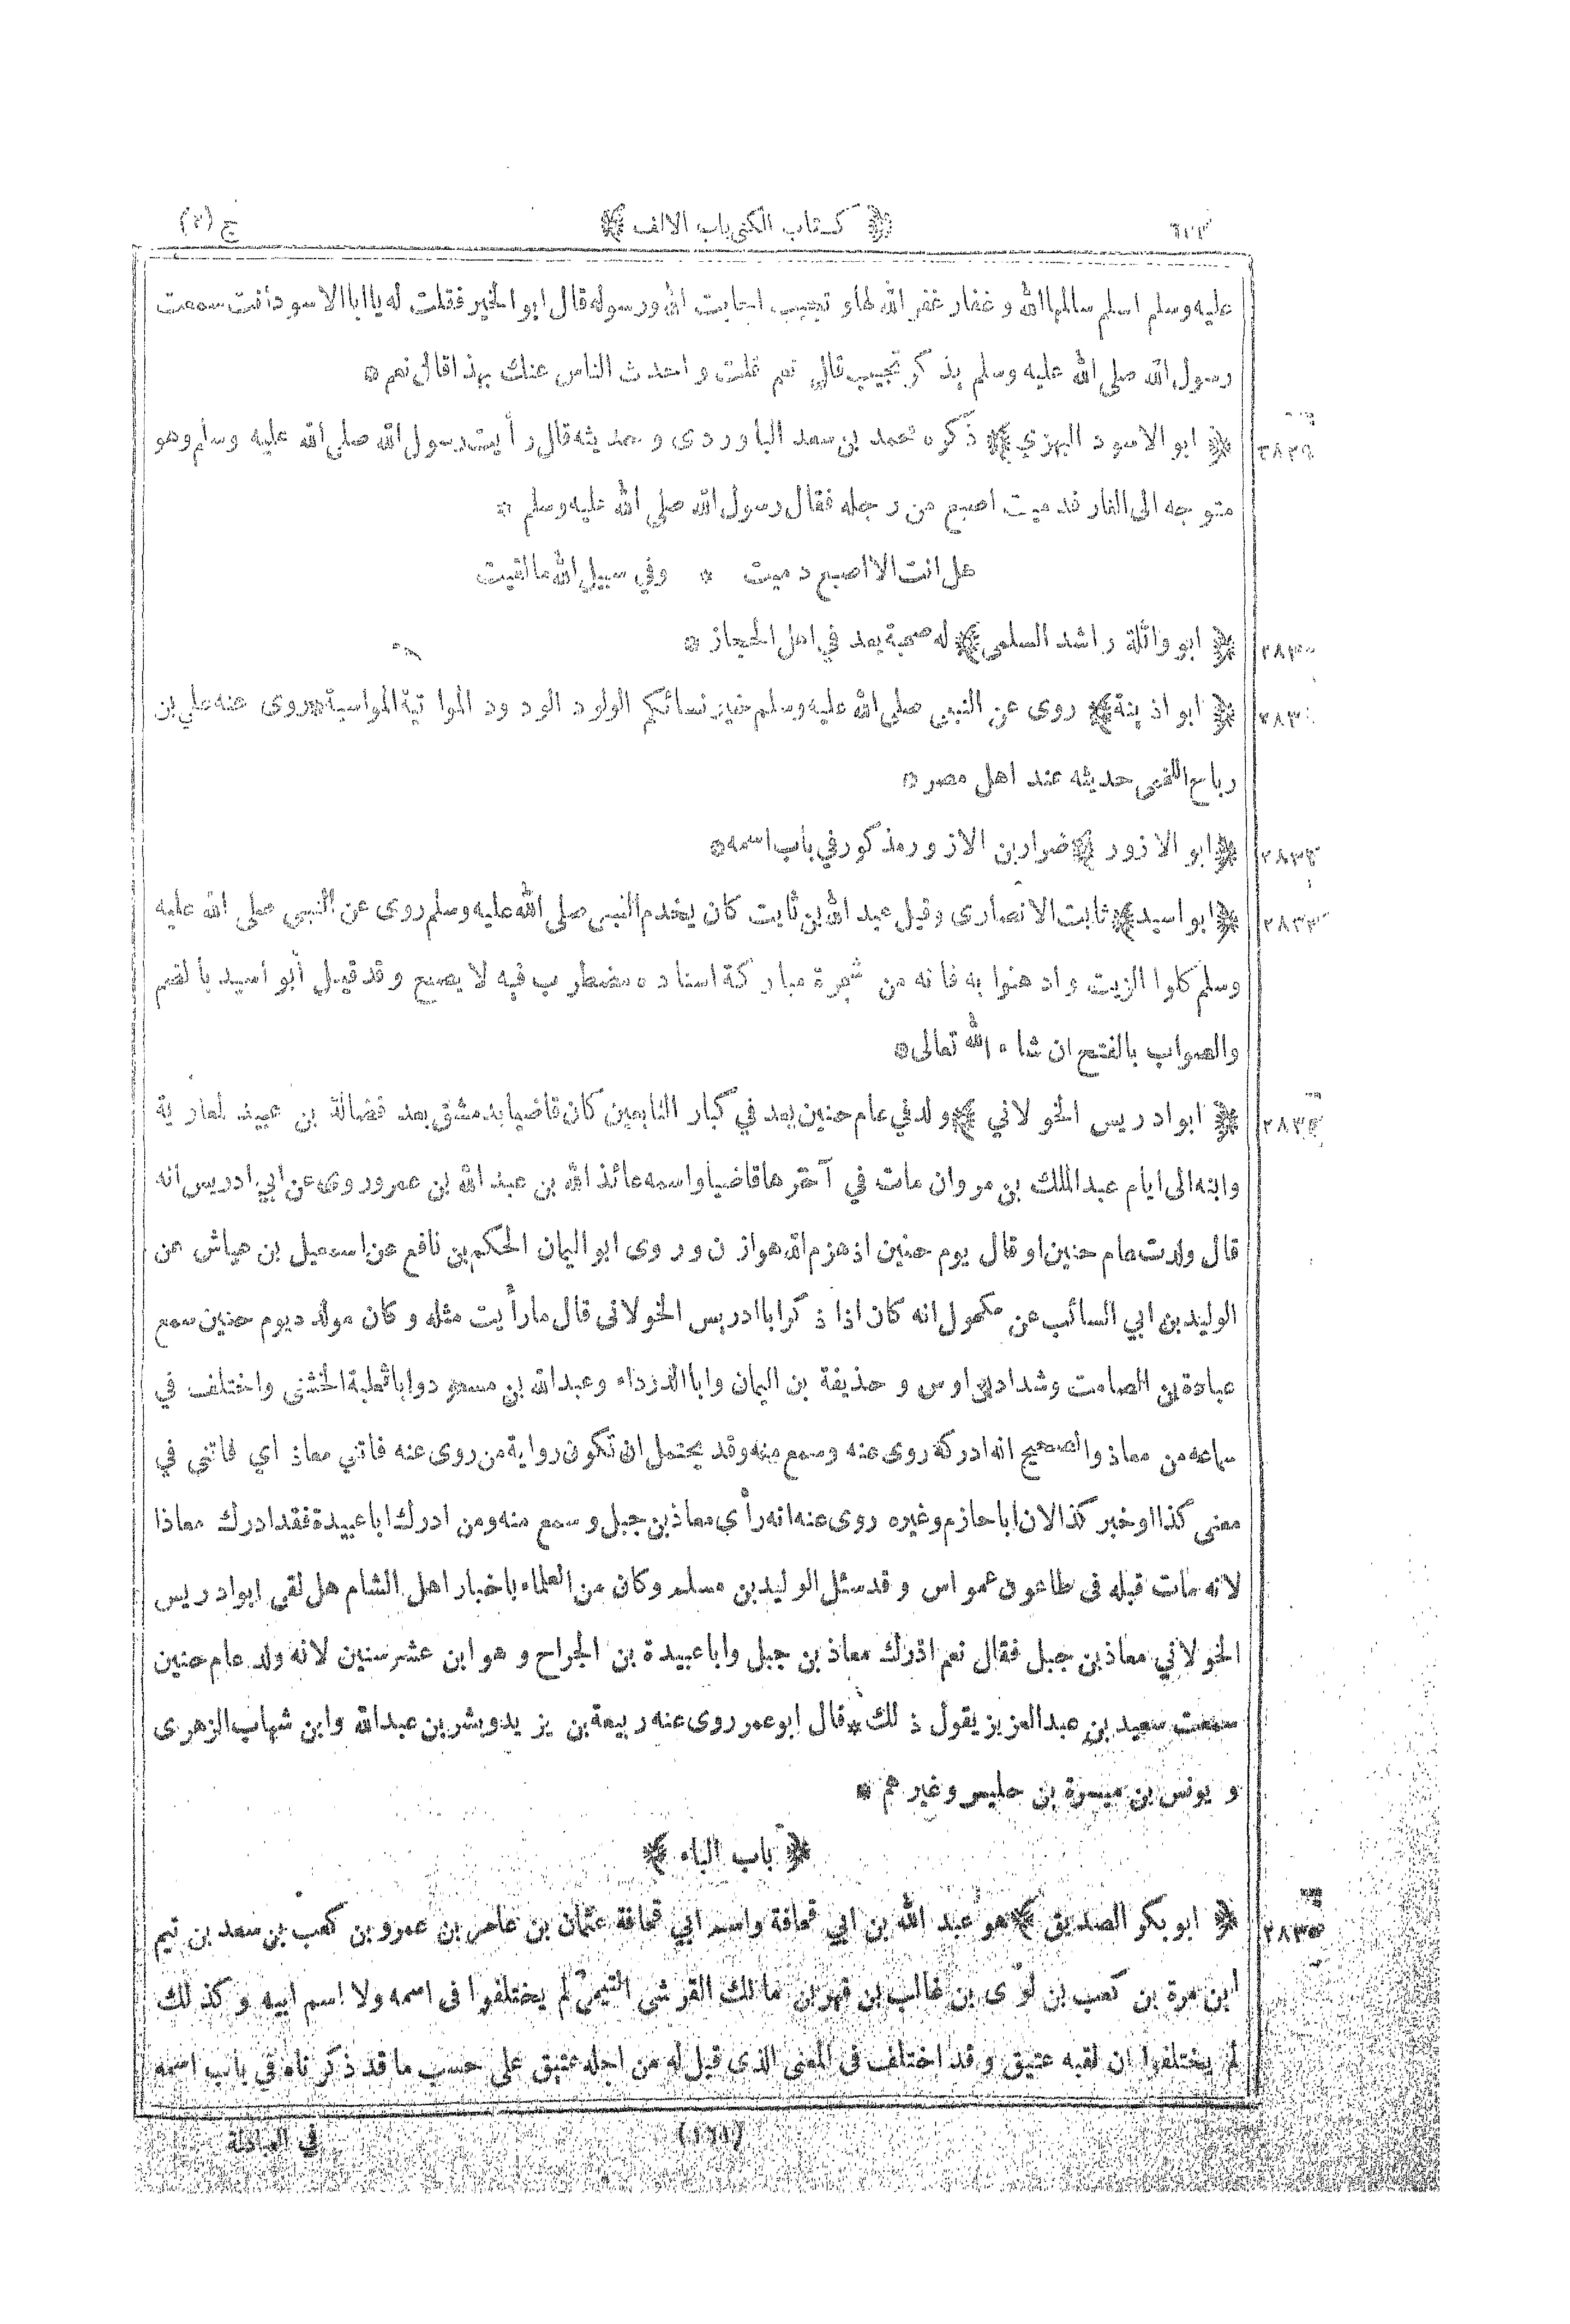 ﴿ كتاب الكنى باب الالف ﴾ ج (٢)
عليه وسلم اسلم سالمها الله و غفار غفر الله لها و تجيب اجابت الله ورسوله قال ابو الخير فقلت له يا ابا الاسود أنت سمعت
رسول الله صلى الله عليه وسلم يذكر تجيب قال نعم قلت و احدث الناس عنك بهذا قال نعم *
٢٨٢٩ ﴿ ابو الاسود البهزي ﴾ ذكره محمد بن سعد الباوردى و حديثه قال رأيت رسول الله صلى الله عليه وسلم وهو
متوجه الى الغار فدميت اصبع من رجله فقال رسول الله صلى الله عليه وسلم *
هل انت الا اصبع دميت * وفي سبيل الله ما لقيت
٢٨٣٠ ﴿ ابو واثلة راشد السلمى ﴾ له صحبة يعد في اهل الحجاز *
٢٨٣١ ﴿ ابو اذينة ﴾ روى عن النبي صلى الله عليه وسلم خير نسائكم الولود الودود المواتية المواسية * روى عنه علي بن
رباح اللخمى حديثه عند اهل مصر *
٢٨٣٢ ﴿ ابو الازور ﴾ ضرار بن الازور مذكور في باب اسمه *
٢٨٣٣ ﴿ ابو اسيد ﴾ ثابت الانصارى وقيل عبد الله بن ثابت كان يخدم النبى صلى الله عليه وسلم روى عن النبى صلى الله عليه
وسلم كلوا الزيت و ادهنوا به فانه من شجرة مباركة اسناده مضطرب فيه لا يصح و قد قيل أبو اسيد بالضم
والصواب بالفتح ان شاء الله تعالى *
٢٨٣٤ ﴿ ابو ادريس الخولاني ﴾ ولد في عام حنين يعد في كبار التابعين كان قاضيا بدمشق بعد فضالة بن عبيد لمعاوية
وابنه الى ايام عبد الملك بن مروان مات في آخرها قاضيا واسمه عائذ الله بن عبد الله بن عمر وروى عن ابي ادريس انه
قال ولدت عام حنين او قال يوم حنين اذ هزم الله هوازن و روى ابو اليمان الحكم بن نافع عن اسمعيل بن عياش عن
الوليد بن ابي السائب عن مكحول انه كان اذا ذكر ابا ادريس الخولانى قال ما رأيت مثله و كان مولده يوم حنين سمع
عبادة بن الصامت وشداد بن اوس و حذيفة بن اليمان وابا الدرداء وعبد الله بن مسعود وابا ثعلبة الخشنى واختلف في
سماعه من معاذ والصحيح انه ادركه روى عنه وسمع منه وقد يحتمل ان تكون رواية من روى عنه فاتني معاذ اي فاتنى في
معنى كذا او خبر كذا لان ابا حازم وغيره روى عنه انه رأى معاذ بن جبل و سمع منه ومن ادرك ابا عبيدة فقد ادرك معاذا
لانه مات قبله فى طاعون عمواس و قد سئل الوليد بن مسلم وكان من العلماء باخبار اهل الشام هل لقى ابو ادريس
الخولاني معاذ بن جبل فقال نعم ادرك معاذ بن جبل وابا عبيدة بن الجراح و هو ابن عشر سنين لانه ولد عام حنين
سمعت سعيد بن عبد العزيز يقول ذلك * قال ابو عمر روى عنه ربيعة بن يزيد وبشر بن عبد الله وابن شهاب الزهرى
و يونس بن ميسرة بن حلبس وغيرهم *
﴿ باب الباء ﴾
٢٨٣٥ ﴿ ابو بكر الصديق ﴾ هو عبد الله بن ابي قحافة واسم ابي قحافة عثمان بن عامر بن عمرو بن كعب بن سعد بن تيم
ابن مرة بن كعب بن لؤى بن غالب بن فهر بن مالك القرشى التيمى لم يختلفوا فى اسمه ولا اسم ابيه و كذلك
لم يختلفوا ان لقبه عتيق و قد اختلف فى المعنى الذى قيل له من اجله عتيق على حسب ما قد ذكرناه في باب اسمه
في العبادلة